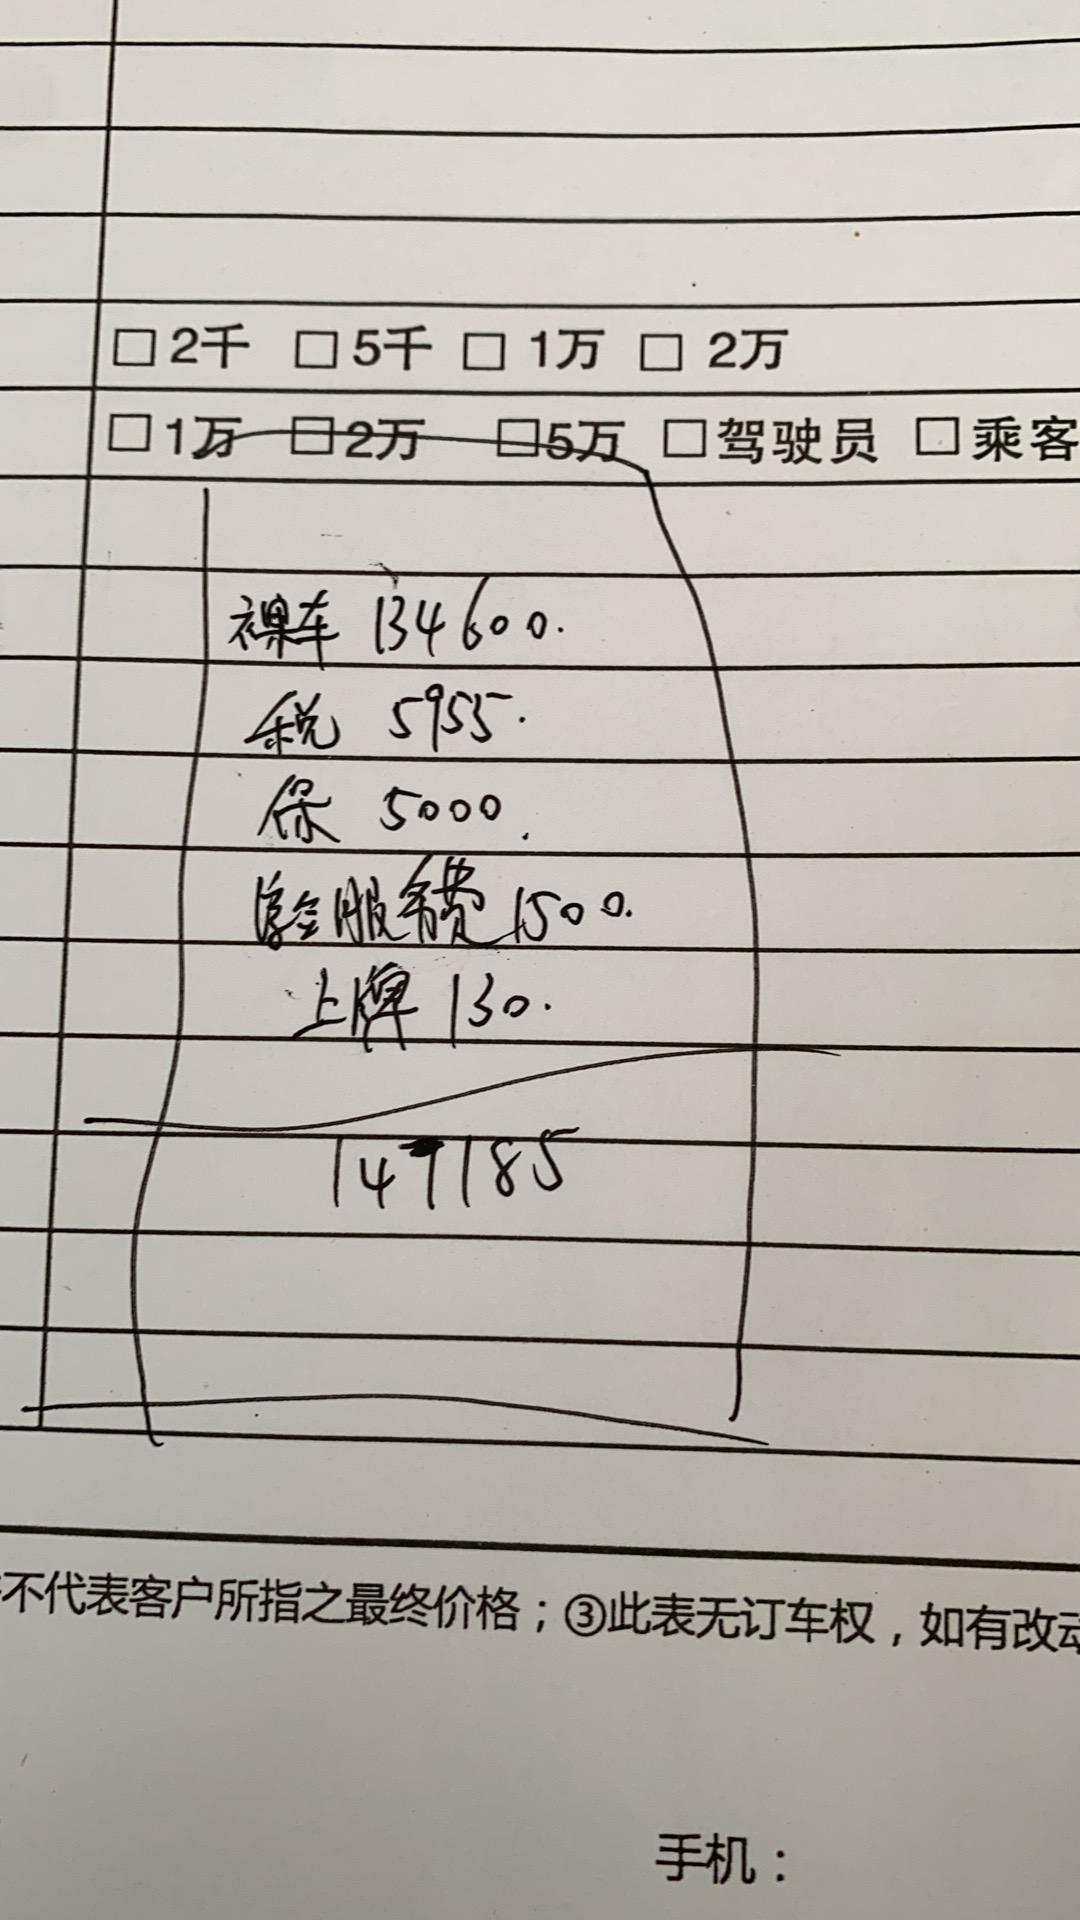 □ 2千 □ 5千 □ 1万 □ 2万
□ 1万 □ 2万 □ 5万 □ 驾驶员 □ 乘客
裸车 134600.
税 5955.
保 5000.
服务费 1500.
上牌 130.
147185
不代表客户所指之最终价格；③此表无订车权，如有改动
手机：